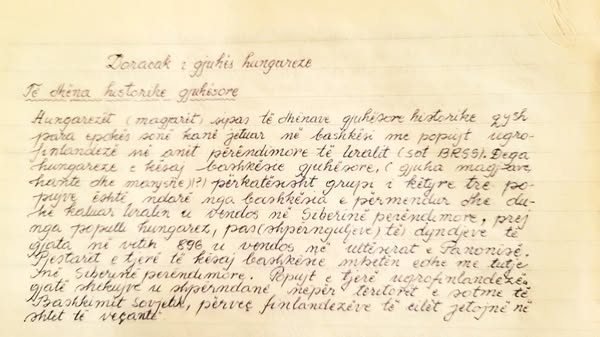 Doracak i gjuhës hungareze
Të dhëna historike gjuhësore
Hungarezët (magjarët) sipas të dhënave gjuhësore historike qysh
para epokës sonë kanë jetuar në bashkësi me popujt ugro-
finlandezë në anët përëndimore të Uralit (sot BRSS). Dega
hungareze e kësaj bashkësie gjuhësore, (gjuha magjare,
hante dhe manyshe)(?) përkatësisht grupi i këtyre tre po-
pujve është ndarë nga bashkësia e përmendur dhe du-
kë kaluar Uralin u vendos në Siberinë perëndimore, prej
nga populli hungarez, pas (shpërnguljeve) të dyndjeve të
gjata në vitin 896 u vendos në rultësirat e Panonisë.
Pjestarët e tjerë të kësaj bashkësie mbetën edhe me tutje
në Siberinë perëndimore. Popujt e tjerë ugrofinlandezë
gjatë shekujve u shpërndanë nëpër teritoret e sotme të
Bashkimit Sovjetik, përveç finlandezëve të cilët jetojnë në
shtet të veçantë.